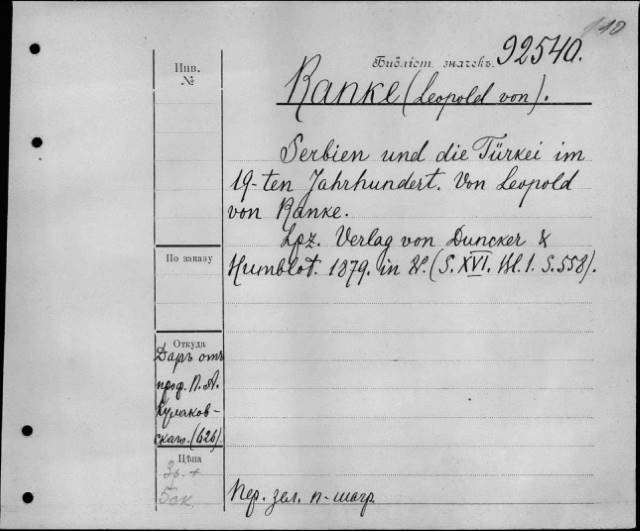 110
Библіот. значекъ. 92540.
Инв.
№
Ranke (Leopold von).
Serbien und die Türkei im
19-ten Jahrhundert. Von Leopold
von Ranke.
Lpz. Verlag von Duncker &
Humblot. 1879. in 8º. (S. XVI. Bl. 1. S. 558).
По заказу
Откуда
Даръ отъ
проф. П. А.
Кулаков-
скаго. (626).
Цѣна
3р. +
50к.
Пер. зел. п-шагр.